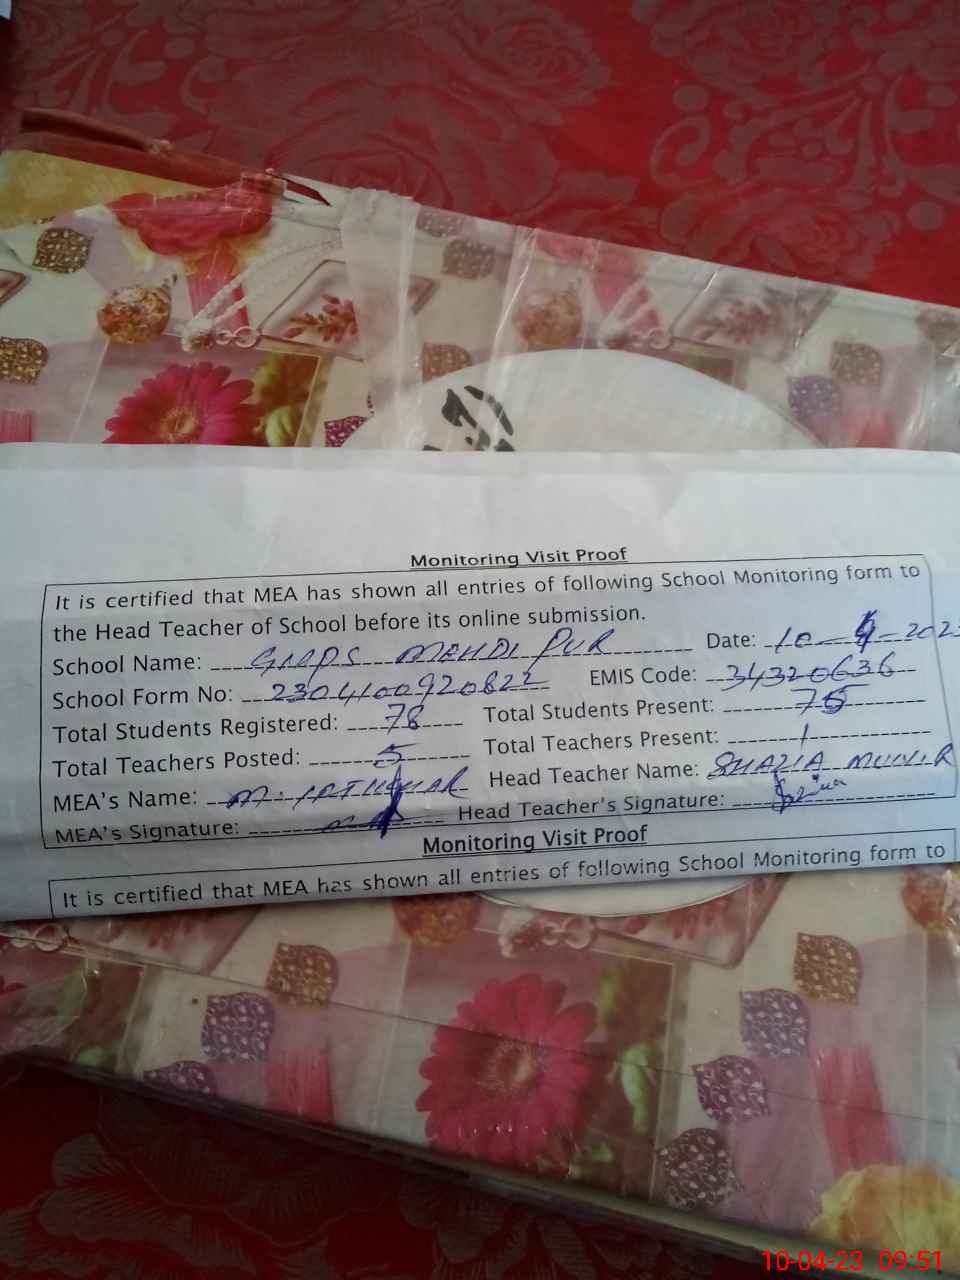 Monitoring Visit Proof
It is certified that MEA has shown all entries of following School Monitoring form to
the Head Teacher of School before its online submission.
School Name: GMPS MEHDI PUR Date: 10-4-2023
School Form No: 2304100920822 EMIS Code: 34320636
Total Students Registered: 78 Total Students Present: 75
Total Teachers Posted: 5 Total Teachers Present: 1
MEA's Name: M. IFTIKHAR Head Teacher Name: SHAZIA MUNIR
MEA's Signature: Head Teacher's Signature:
Monitoring Visit Proof
It is certified that MEA has shown all entries of following School Monitoring form to
10-04-23 09:51